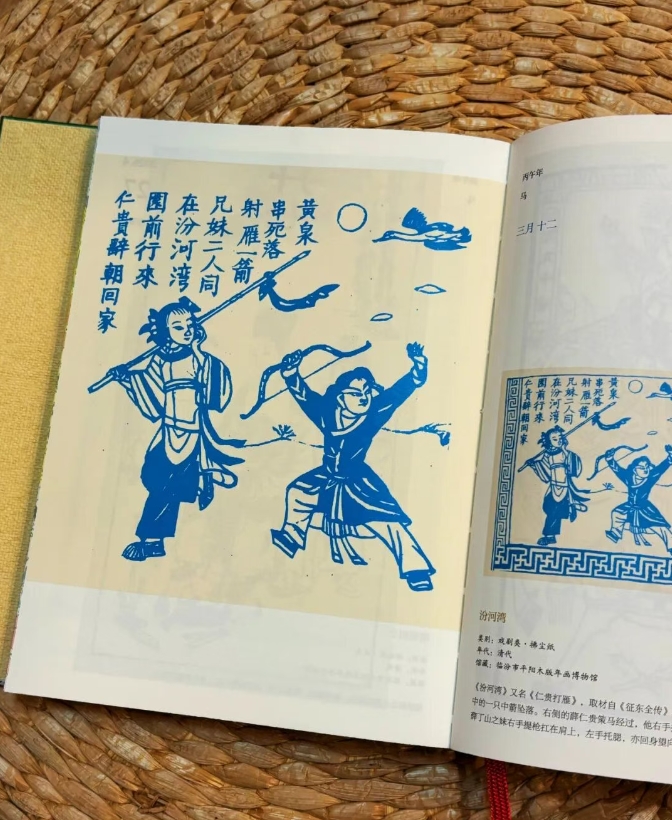 黃泉
串死落
射雁一箭
兄妹二人同
在汾河湾
園前行來
仁貴辭朝回家
丙午年
马
三月十二
黃泉
串死落
射雁一箭
兄妹二人同
在汾河湾
園前行來
仁貴辭朝回家
汾河湾
类别：戏剧类·拂尘纸
年代：清代
馆藏：临汾市平阳木版年画博物馆
《汾河湾》又名《仁贵打雁》，取材自《征东全传》
中的一只中箭坠落。右侧的薛仁贵策马经过，他右手
薛丁山之妹右手提枪扛在肩上，左手托腮，亦回身望